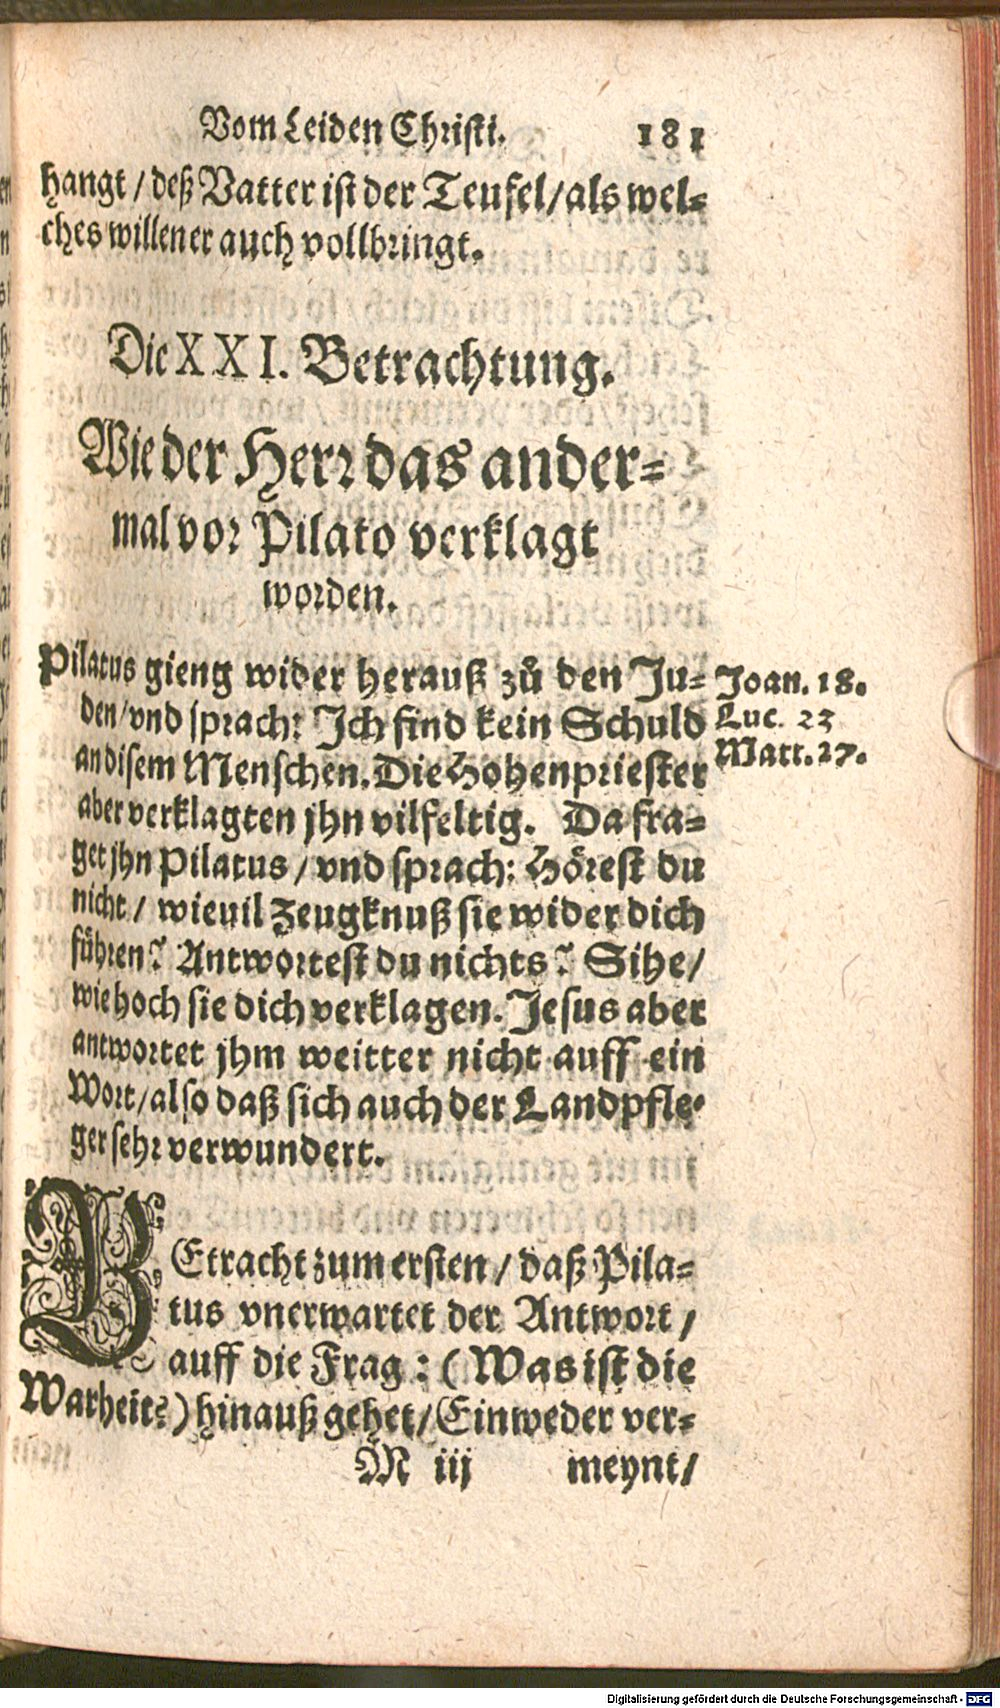 Vom Leiden Christi. 181
hangt / deß Vatter ist der Teufel / als wel-
ches willen er auch vollbringt.
Die XXI. Betrachtung.
Wie der Herr das ander-
mal vor Pilato verklagt
worden.
Pilatus gieng wider herauß zů den Ju-
den / vnd sprach: Ich find kein Schuld
an disem Menschen. Die Hohenpriester
aber verklagten jhn vilfeltig. Da fra-
get jhn Pilatus / vnd sprach: Hörest du
nicht / wieuil Zeugknuß sie wider dich
führen? Antwortest du nichts? Sihe /
wie hoch sie dich verklagen. Jesus aber
antwortet jhm weitter nicht auff ein
Wort / also daß sich auch der Landpfle-
ger sehr verwundert.
Joan. 18.
Luc. 23
Matt. 27.
BEtracht zum ersten / daß Pila-
tus vnerwartet der Antwort /
auff die Frag : ( Was ist die
Warheit? ) hinauß gehet / Einweder ver-
M iij meynt /
Digitalisierung gefördert durch die Deutsche Forschungsgemeinschaft - DFG